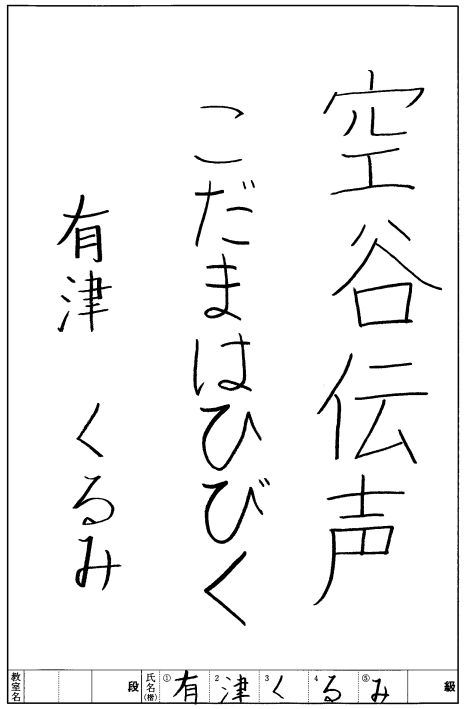 空谷伝声
こだまはひびく
有津 くるみ
教室名 段 氏名(楷) ①有 2津 3く 4る ⑤み 級